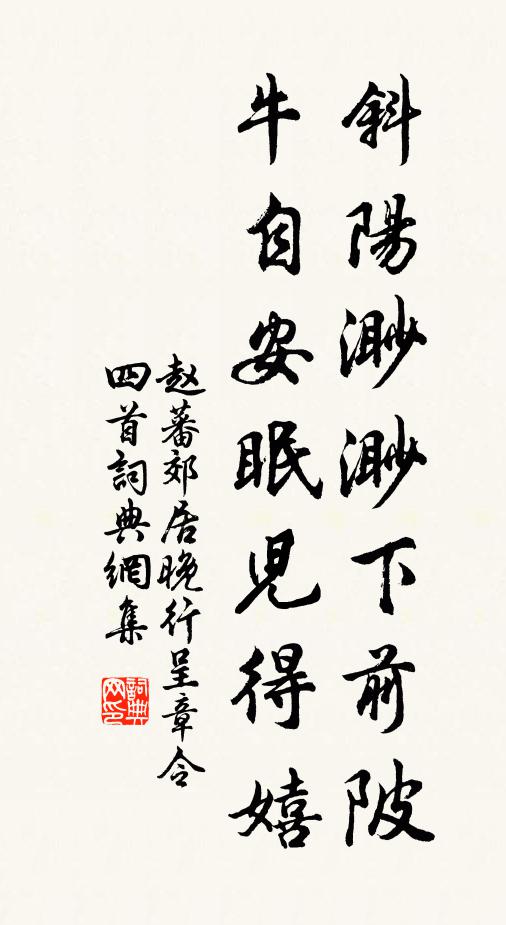 斜陽渺渺下前陂
牛自安眠児得嬉
赵蕃郊居晚行呈章令
四首詞典網集
詞典網印